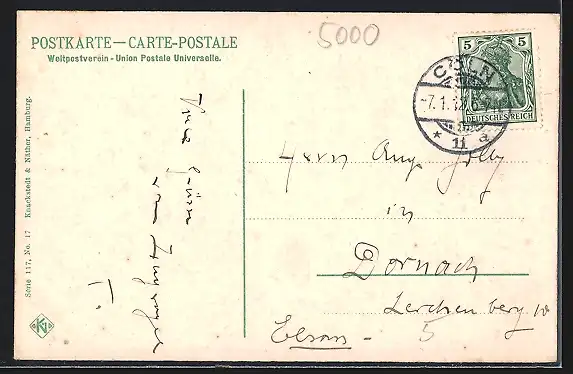 5000
POSTKARTE—CARTE-POSTALE
Weltpostverein - Union Postale Universelle.
5 5
DEUTSCHES REICH
CÖLN
-7.1.12 6-7
* 11 a
Serie 117, No. 17 Knackstedt & Näther, Hamburg.
Viele Grüsse
von
T.
Herrn Aug. Jolly
in
Dornach
Lerchenberg 10
Elsass -
5